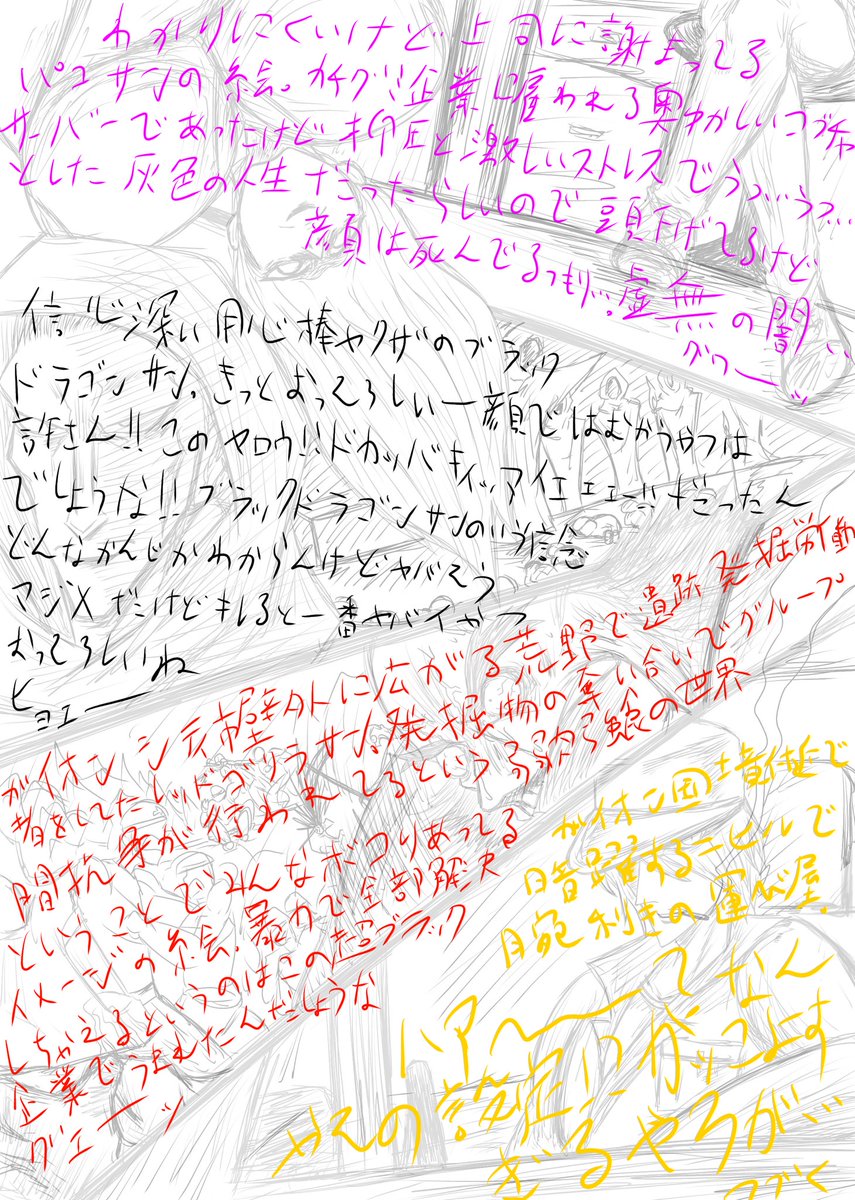 わかりにくいけど上司に謝まってる
パユサンの絵。カチグミ企業に雇われる奥ゆかしいコブチャ
サーバーであったけど抑圧と激しいストレスでうつ…うつ…
とした灰色の人生だったらしいので頭下げてるけど
顔は死んでるつもり…。虚無の闇い
グワーッ
信心深い用心棒ヤクザのブラック
ドラゴンサン。きっとおっそろしい顔ではむかうやつは
許さん!!このヤロウ!!ドカッバキィッアイエエエー!!だったん
でしょうな!!ブラックドラゴンサンのいう信念
どんなかんじかわからんけどヤバそう
マジメだけどキレると一番ヤバイやつ
おっそろしいね
ヒョエーー
ガイオンシティ市壁外に広がる荒野で遺跡発掘労働
者をしてたレッドゴリラサン。発掘物の奪い合いでグループ
間抗争が行われてるという弱肉強食の世界
ということでみんなボコりあってる
イメージの絵。暴力で全部解決
しちゃえるというのはこの超ブラック
企業でうまれたんだろうな
グエーッ
ガイオン国境付近で
暗躍するニヒルで
腕利きの運び屋。
ハア〜〜てなん
やその設定!?カッコよす
ぎるやろが…
つづく